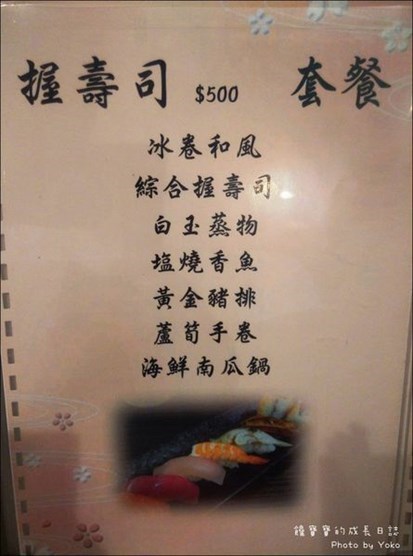 握壽司 $500 套餐
冰卷和風
綜合握壽司
白玉蒸物
塩燒香魚
黃金豬排
蘆筍手卷
海鮮南瓜鍋
饅寶寶的成長日誌
Photo by Yoko